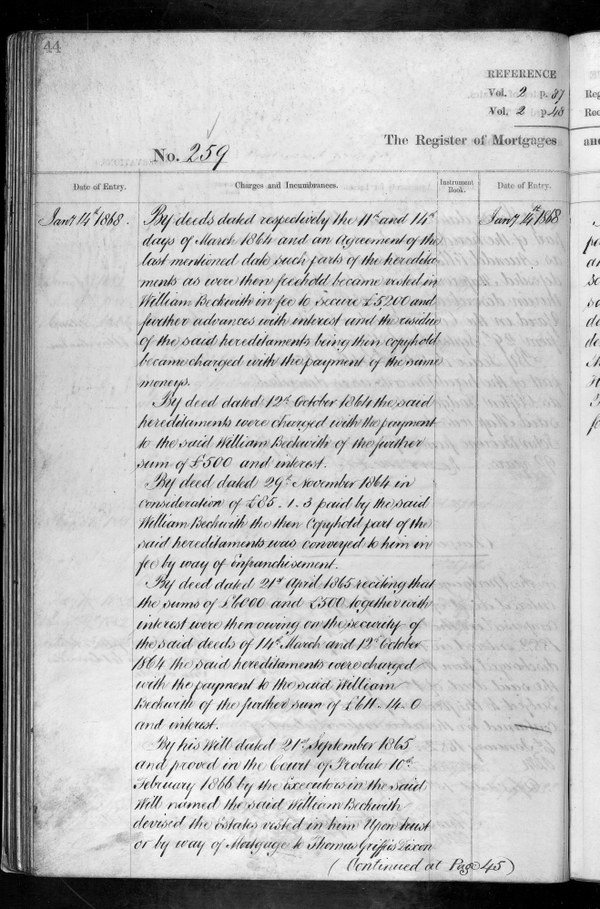 44
REFERENCE
Vol. 2 p. 37
Vol. 2 p. 48
The Register of Mortgages
No. 259
Date of Entry.
Charges and Incumbrances.
Instrument Book.
Date of Entry.
Jany 14th 1868.
Jany 14th 1868
By deeds dated respectively the 11th and 14th
days of March 1864 and an Agreement of the
last mentioned date such parts of the heredita-
ments as were then freehold became vested in
William Beckwith in fee to secure £5200 and
further advances with interest and the residue
of the said hereditaments being then copyhold
became charged with the payment of the same
moneys.
By deed dated 12th October 1864 the said
hereditaments were charged with the payment
to the said William Beckwith of the further
sum of £500 and interest.
By deed dated 29th November 1864 in
consideration of £85. 1. 3 paid by the said
William Beckwith the then Copyhold part of the
said hereditaments was conveyed to him in
fee by way of Enfranchisement.
By deed dated 21st April 1865 reciting that
the sums of £6000 and £500 together with
interest were then owing on the security of
the said deeds of 14th March and 12th October
1864 the said hereditaments were charged
with the payment to the said William
Beckwith of the further sum of £611. 14. 0
and interest.
By his Will dated 21st September 1865
and proved in the Court of Probate 10th
February 1866 by the Executors in the said
Will named the said William Beckwith
devised the Estates vested in him Upon trust
or by way of Mortgage to Thomas Griffis Dixon
(Continued at Page 45)